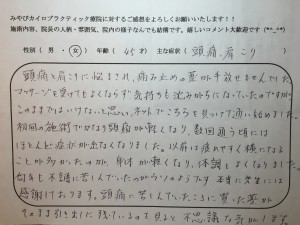 みやびカイロプラクティック療院に対するご感想をよろしくお願いいたします!!
施術内容、院長の人柄・雰囲気、院内の様子なんでも結構です。嬉しいコメント大歓迎です(*^_^*)
性別( 男 ・ 女 ) 年齢( 45才 ) 主な症状( 頭痛、肩こり
頭痛と肩こりに悩まされ、痛み止めの薬が手放せませんでした
マッサージを受けてもよくならず気持ちも沈みがちになっていたのですが
このままではいけないと思い、ネットでこちらを見つけて通い始めました
初回の施術でかなり頭痛が軽くなり、数回通う頃には
ほとんど症状が出なくなりました。以前は疲れやすく横になる
ことが多かったのが、身体が軽くなり、体調もよくなりました
何年も不調に苦しんでいたのがウソのようです 本当に先生には
感謝しております。頭痛に苦しんでいたころに買った薬が
そのまま引き出しに残っているのを見ると不思議な気がします。